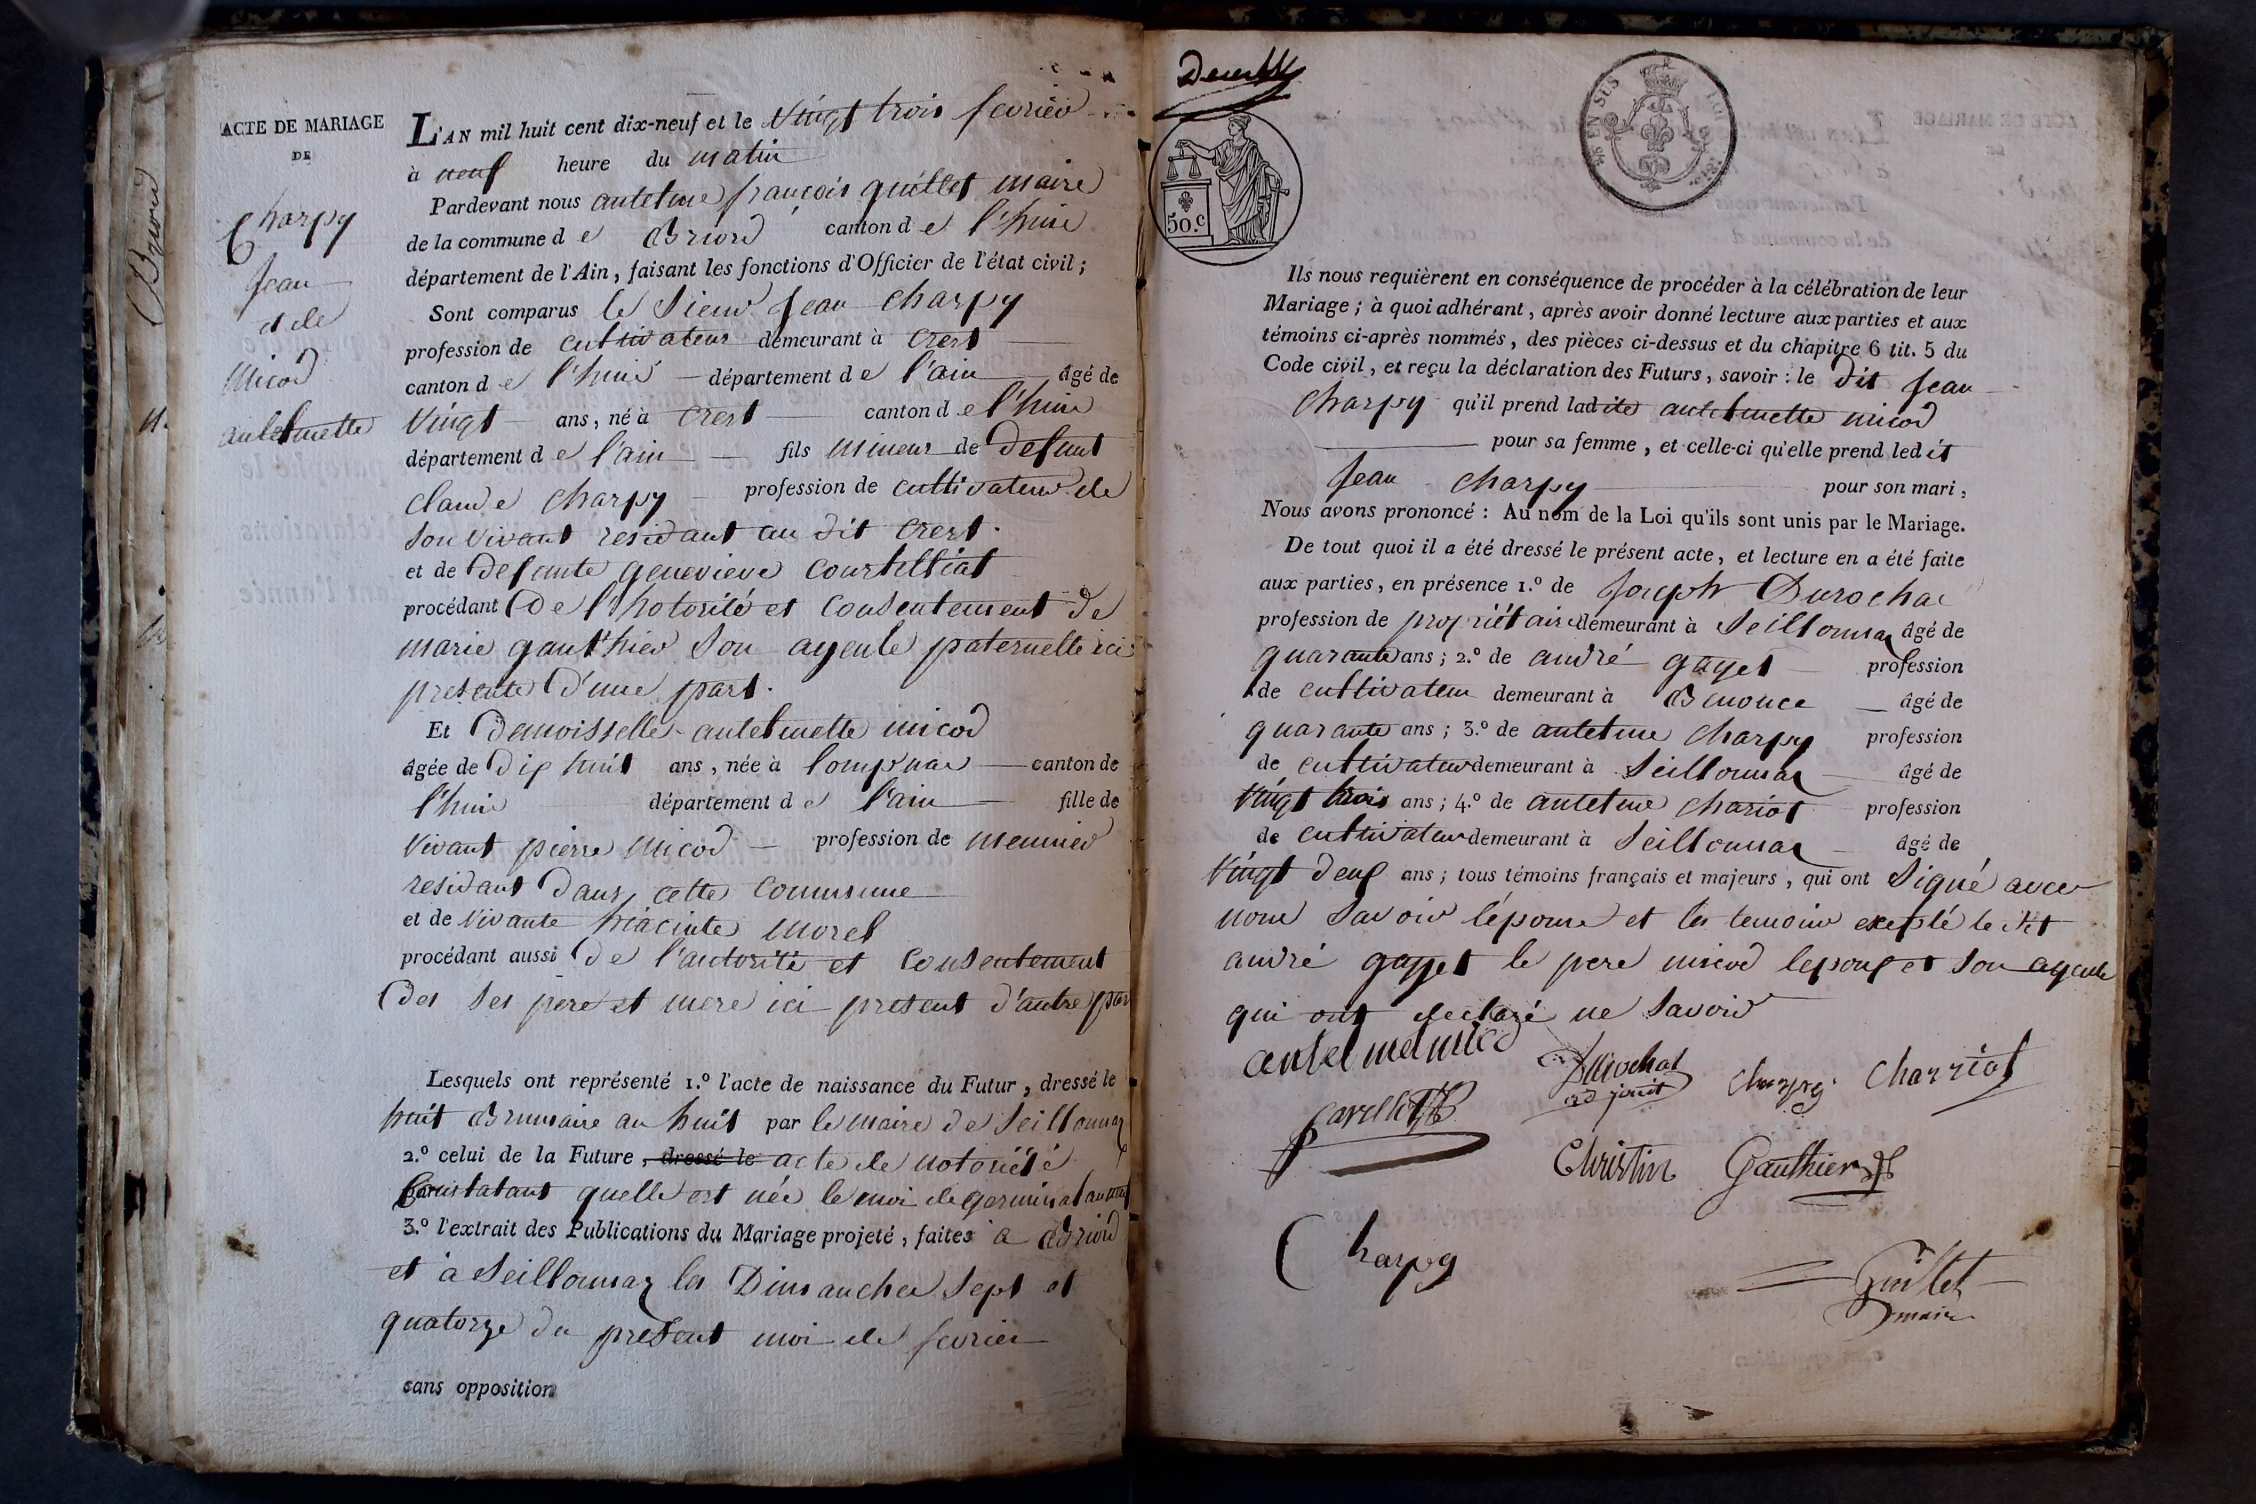 Briord
ACTE DE MARIAGE
DE
Charpy
Jean
et de
Micod
antelmette
L'AN mil huit cent dix-neuf et le vingt trois fevrier
à neuf heure du matin
Pardevant nous antelme françois quillet maire
de la commune d e Briord canton d e l'huie
département de l'Ain, faisant les fonctions d'Officier de l'état civil;
Sont comparus le Sieur Jean Charpy
profession de cultivateur demeurant à Crest
canton d e l'huie département d e l'ain âgé de
vingt ans, né à Crest canton d e l'huie
département d e l'ain fils mineur de defunt
claude charpy profession de cultivateur de
son vivant residant au dit Crest.
et de defunte genevieve
procédant de l'hotorité et Consentement de
marie gauthier son ayeule paternelle ici
presente d'une part.
Et Demoisselle antelmette micod
âgée de dix huit ans, née à lompnas canton de
l'huie département d e l'ain fille de
vivant pierre micod profession de meunier
residant dans cette Commune
et de vivante hiacinte morel
procédant aussi de l'autorité et Consentement
des ses pere et mere ici present d'autre par
Lesquels ont représenté 1.º l'acte de naissance du Futur, dressé le
huit Brumaire an huit par le maire de Seillonnaz
2.º celui de la Future, dressé le acte de notoriété
Constatant quelle est née le moi de germinal an
3.º l'extrait des Publications du Mariage projeté, faites à Briord
et à Seillonnaz les Dimanches sept et
quatorze du present moi de fevrier
sans opposition
50.c
EN SUS
Ils nous requièrent en conséquence de procéder à la célébration de leur
Mariage; à quoi adhérant, après avoir donné lecture aux parties et aux
témoins ci-après nommés, des pièces ci-dessus et du chapitre 6 tit. 5 du
Code civil, et reçu la déclaration des Futurs, savoir: le dit Jean
Charpy qu'il prend ladite antelmette micod
pour sa femme, et celle-ci qu'elle prend ledit
Jean Charpy pour son mari,
Nous avons prononcé: Au nom de la Loi qu'ils sont unis par le Mariage.
De tout quoi il a été dressé le présent acte, et lecture en a été faite
aux parties, en présence 1.º de Joseph Durochat
profession de propriétaire demeurant à Seillonnaz âgé de
quarante ans; 2.º de andré gayet profession
de cultivateur demeurant à âgé de
quarante ans; 3.º de antelme Charpy profession
de cultivateur demeurant à Seillonnaz âgé de
vingt trois ans; 4.º de antelme Chariot profession
de cultivateur demeurant à Seillonnaz âgé de
vingt deux ans; tous témoins français et majeurs, qui ont signé avec
nous savoir l'épouse et les temoins exepté le dit
andré gayet le pere micod lepoux et son ayeule
qui ont declaré ne savoir
antelmemicod
Durochat
adjouit
Charpy
Charriot
Christin
Gauthier
Charpy
Quillet
maire